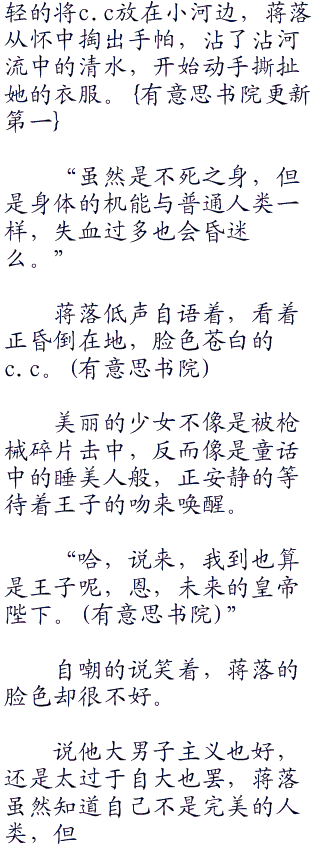 轻的将c.c放在小河边，蒋落
从怀中掏出手帕，沾了沾河
流中的清水，开始动手撕扯
她的衣服。{有意思书院更新
第一}
“虽然是不死之身，但
是身体的机能与普通人类一
样，失血过多也会昏迷
么。”
蒋落低声自语着，看着
正昏倒在地，脸色苍白的
c.c。(有意思书院)
美丽的少女不像是被枪
械碎片击中，反而像是童话
中的睡美人般，正安静的等
待着王子的吻来唤醒。
“哈，说来，我到也算
是王子呢，恩，未来的皇帝
陛下。(有意思书院)”
自嘲的说笑着，蒋落的
脸色却很不好。
说他大男子主义也好，
还是太过于自大也罢，蒋落
虽然知道自己不是完美的人
类，但